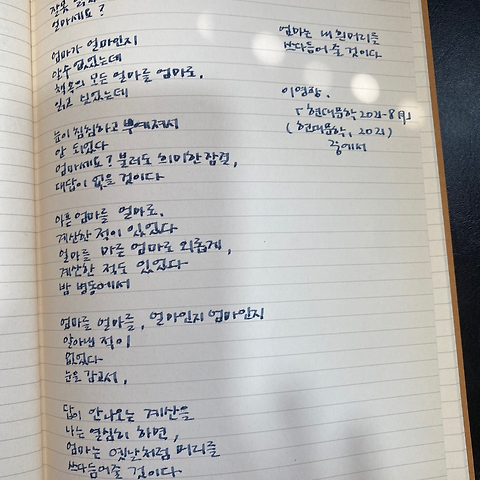 얼마세요?
엄마가 얼마인지
알수 없었는데
책속의 모든 얼마를 엄마로,
읽고 싶었는데
눈이 침침하고 뿌예져서
안 되었다
엄마세요? 불러도 희미한 잠결,
대답이 없을 것이다
아픈 엄마를 얼마로,
계산한 적이 있었다
얼마를 마른 엄마로 외롭게,
계산한 적도 있었다
밤 병동에서
엄마를 얼마를, 얼마인지 엄마인지
알아낸 적이
없었다
눈을 감고서,
답이 안나오는 계산을
나는 열심히 하면,
엄마는 옛날처럼 머리를
쓰다듬어줄 것이다
엄마는 내 흰머리를
쓰다듬어 줄 것이다
이영광.
「현대문학 2021-8月」
(현대문학, 2021)
중에서